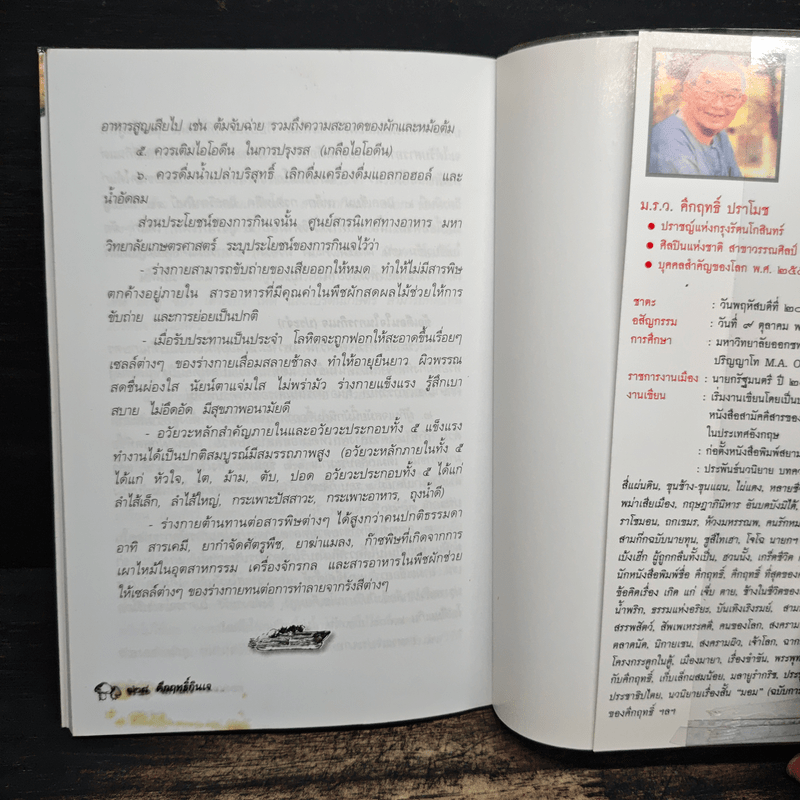 อาหารสูญเสียไป เช่น ต้มจับฉ่าย รวมถึงความสะอาดของผักและหม้อต้ม
๕. ควรเติมไอโอดีน ในการปรุงรส (เกลือไอโอดีน)
๖. ควรดื่มน้ำเปล่าบริสุทธิ์ เลิกดื่มเครื่องดื่มแอลกอฮอล์ และ
น้ำอัดลม
ส่วนประโยชน์ของการกินเจนั้น ศูนย์สารนิเทศทางอาหาร มหา
วิทยาลัยเกษตรศาสตร์ ระบุประโยชน์ของการกินเจไว้ว่า
- ร่างกายสามารถขับถ่ายของเสียออกให้หมด ทำให้ไม่มีสารพิษ
ตกค้างอยู่ภายใน สารอาหารที่มีคุณค่าในพืชผักสดผลไม้ช่วยให้การ
ขับถ่าย และการย่อยเป็นปกติ
- เมื่อรับประทานเป็นประจำ โลหิตจะถูกฟอกให้สะอาดขึ้นเรื่อยๆ
เซลล์ต่างๆ ของร่างกายเสื่อมสลายช้าลง ทำให้อายุยืนยาว ผิวพรรณ
สดชื่นผ่องใส นัยน์ตาแจ่มใส ไม่พร่ามัว ร่างกายแข็งแรง รู้สึกเบา
สบาย ไม่อึดอัด มีสุขภาพอนามัยดี
- อวัยวะหลักสำคัญภายในและอวัยวะประกอบทั้ง ๕ แข็งแรง
ทำงานได้เป็นปกติสมบูรณ์มีสมรรถภาพสูง (อวัยวะหลักภายในทั้ง ๕
ได้แก่ หัวใจ, ไต, ม้าม, ตับ, ปอด อวัยวะประกอบทั้ง ๕ ได้แก่
ลำไส้เล็ก, ลำไส้ใหญ่, กระเพาะปัสสาวะ, กระเพาะอาหาร, ถุงน้ำดี)
- ร่างกายต้านทานต่อสารพิษต่างๆ ได้สูงกว่าคนปกติธรรมดา
อาทิ สารเคมี, ยากำจัดศัตรูพืช, ยาฆ่าแมลง, ก๊าซพิษที่เกิดจากการ
เผาไหม้ในอุตสาหกรรม เครื่องจักรกล และสารอาหารในพืชผักช่วย
ให้เซลล์ต่างๆ ของร่างกายทนต่อการทำลายจากรังสีต่างๆ
คึกฤทธิ์กินเจ
ม.ร.ว. คึกฤทธิ์ ปราโมช
● ปราชญ์แห่งกรุงรัตนโกสินทร์
● ศิลปินแห่งชาติ สาขาวรรณศิลป์
● บุคคลสำคัญของโลก พ.ศ.
ชาตะ : วันพฤหัสบดีที่
อสัญกรรม : วันที่ ๙ ตุลาคม
การศึกษา : มหาวิทยาลัยออกซฟ
ปริญญาโท M.A.
ราชการงานเมือง : นายกรัฐมนตรี ปี
งานเขียน : เริ่มงานเขียนโดยเป็น
หนังสือสามัคคีสารของ
ในประเทศอังกฤษ
: ก่อตั้งหนังสือพิมพ์สยาม
: ประพันธ์นวนิยาย บทคว
สี่แผ่นดิน, ขุนช้าง-ขุนแผน, ไผ่แดง, หลายชี
พม่าเสียเมือง, กฤษฎาภินิหาร อันบดบังมิได้,
ราโชมอน, ถกเขมร, ห้วงมหรรณพ, คนรักหม
สามก๊กฉบับนายทุน, ซูสีไทเฮา, โจโฉ นายกฯ
เบ้งเฮ็ก ผู้ถูกกลืนทั้งเป็น, ฮวนนั้ง, เกร็ดชีวิต
นักหนังสือพิมพ์ชื่อ คึกฤทธิ์, คึกฤทธิ์ ที่สุดของ
ข้อคิดเรื่อง เกิด แก่ เจ็บ ตาย, ช้างในชีวิตของ
น้ำพริก, ธรรมแห่งอริยะ, บันเทิงเริงรมย์,
สรรพสัตว์, สัพเพเหระคดี, คนของโลก, สงคราม
ตลาดนัด, นิกายเซน, สงครามผิว, เจ้าโลก, ฉาก
โครงกระดูกในตู้, เมืองมายา, เรื่องขำขัน, พระพุท
กับคึกฤทธิ์, เก็บเล็กผสมน้อย, มลายูรำกริช,
ประชาธิปไตย, นวนิยายเรื่องสั้น "มอม"
ของคึกฤทธิ์ ฯลฯ